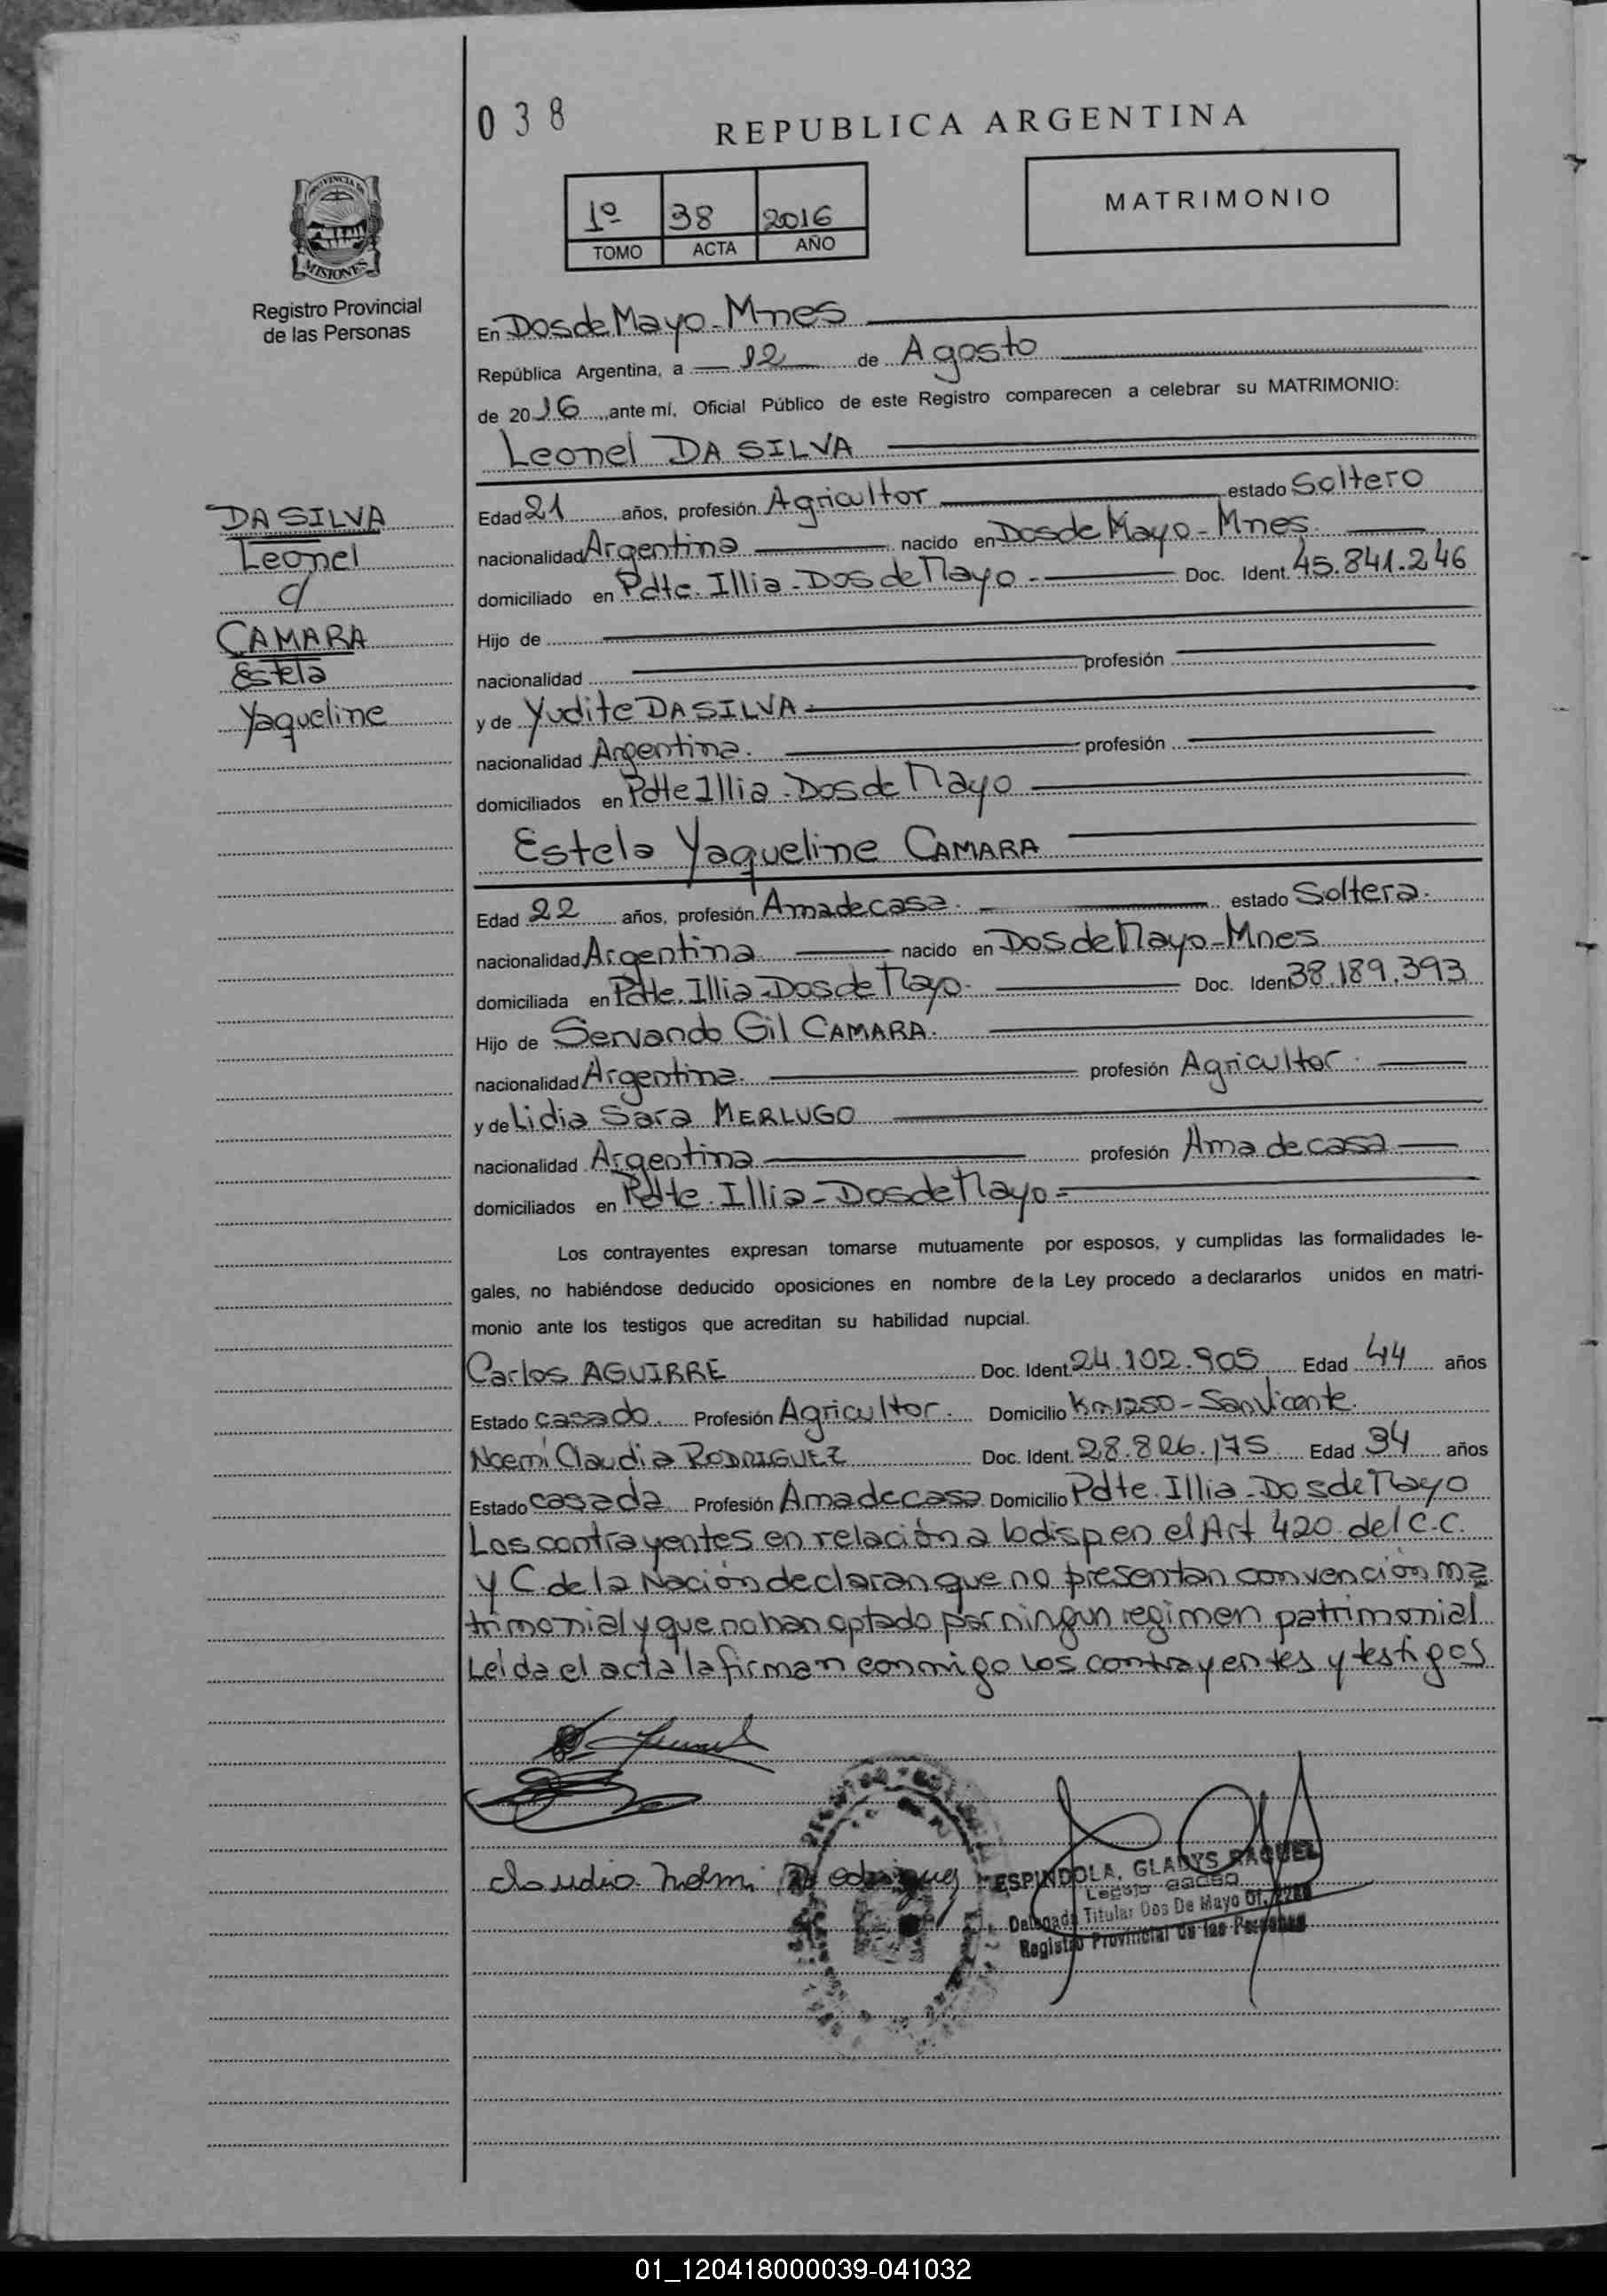 038
REPUBLICA ARGENTINA
PROVINCIA DE
MISIONES
Registro Provincial
de las Personas
1º 38 2016
TOMO ACTA AÑO
MATRIMONIO
En Dos de Mayo - Mnes
República Argentina, a 12 de Agosto
de 2016 ante mí, Oficial Público de este Registro comparecen a celebrar su MATRIMONIO:
Leonel DA SILVA
DA SILVA
Leonel
c/
CAMARA
Estela
Yaqueline
Edad 21 años, profesión Agricultor estado Soltero
nacionalidad Argentina nacido en Dos de Mayo - Mnes.
domiciliado en Pdte. Illia - Dos de Mayo - Doc. Ident. 45.841.246
Hijo de
nacionalidad profesión
y de Yudite DA SILVA
nacionalidad Argentina. profesión
domiciliados en Pdte Illia - Dos de Mayo
Estela Yaqueline CAMARA
Edad 22 años, profesión Ama de casa. estado Soltera.
nacionalidad Argentina nacido en Dos de Mayo - Mnes
domiciliada en Pdte. Illia - Dos de Mayo. Doc. Iden 38.189.393
Hijo de Servando Gil CAMARA.
nacionalidad Argentina. profesión Agricultor.
y de Lidia Sara MERLUGO
nacionalidad Argentina profesión Ama de casa
domiciliados en Pdte. Illia - Dos de Mayo -
Los contrayentes expresan tomarse mutuamente por esposos, y cumplidas las formalidades le-
gales, no habiéndose deducido oposiciones en nombre de la Ley procedo a declararlos unidos en matri-
monio ante los testigos que acreditan su habilidad nupcial.
Carlos AGUIRRE Doc. Ident. 24.102.905 Edad 44 años
Estado casado. Profesión Agricultor. Domicilio Km 1250 - San Vicente.
Noemí Claudia RODRIGUEZ Doc. Ident. 28.826.175 Edad 34 años
Estado casada Profesión Ama de casa Domicilio Pdte. Illia - Dos de Mayo
Los contrayentes en relación a lo disp en el Art 420 del C.C.
y C. de la Nación declaran que no presentan convención ma
trimonial y que no han optado por ningun regimen patrimonial
Leída el acta la firman conmigo los contrayentes y testigos
Claudia Noemi Rodriguez
ESPINDOLA, GLADYS RAQUEL
Legajo
Delegada Titular Dos De Mayo Of.
Registro Provincial de las Personas
01_120418000039-041032